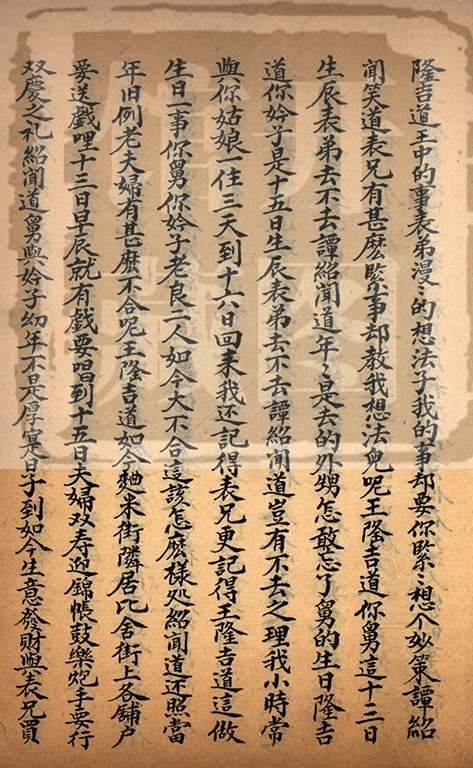 隆吉道王中的事表弟漫〻的想法子我的事却要你緊〻想个妙策譚紹
聞笑道表兄有甚麽緊事却教我想法兒呢王隆吉道你舅這十三日
生辰表弟去不去譚紹聞道年〻是去的外甥怎敢忘了舅的生日隆吉
道你妗子是十五日生辰表弟去不去譚紹聞道豈有不去之理我小時常
與你姑娘一住三天到十六日回来我还記得表兄更記得王隆吉道這做
生日一事你舅你妗子老良二人如今大不合這該怎麽樣処紹聞道还照當
年旧例老夫婦有甚麽不合呢王隆吉道如今麯米街隣居比舍街上各舖户
要送戲哩十三日早辰就有戲要唱到十五日夫婦双寿迎錦帳鼓樂炮手要行
双慶之礼紹聞道舅與妗子幼年不是厚寔日子到如今生意發財與表兄買